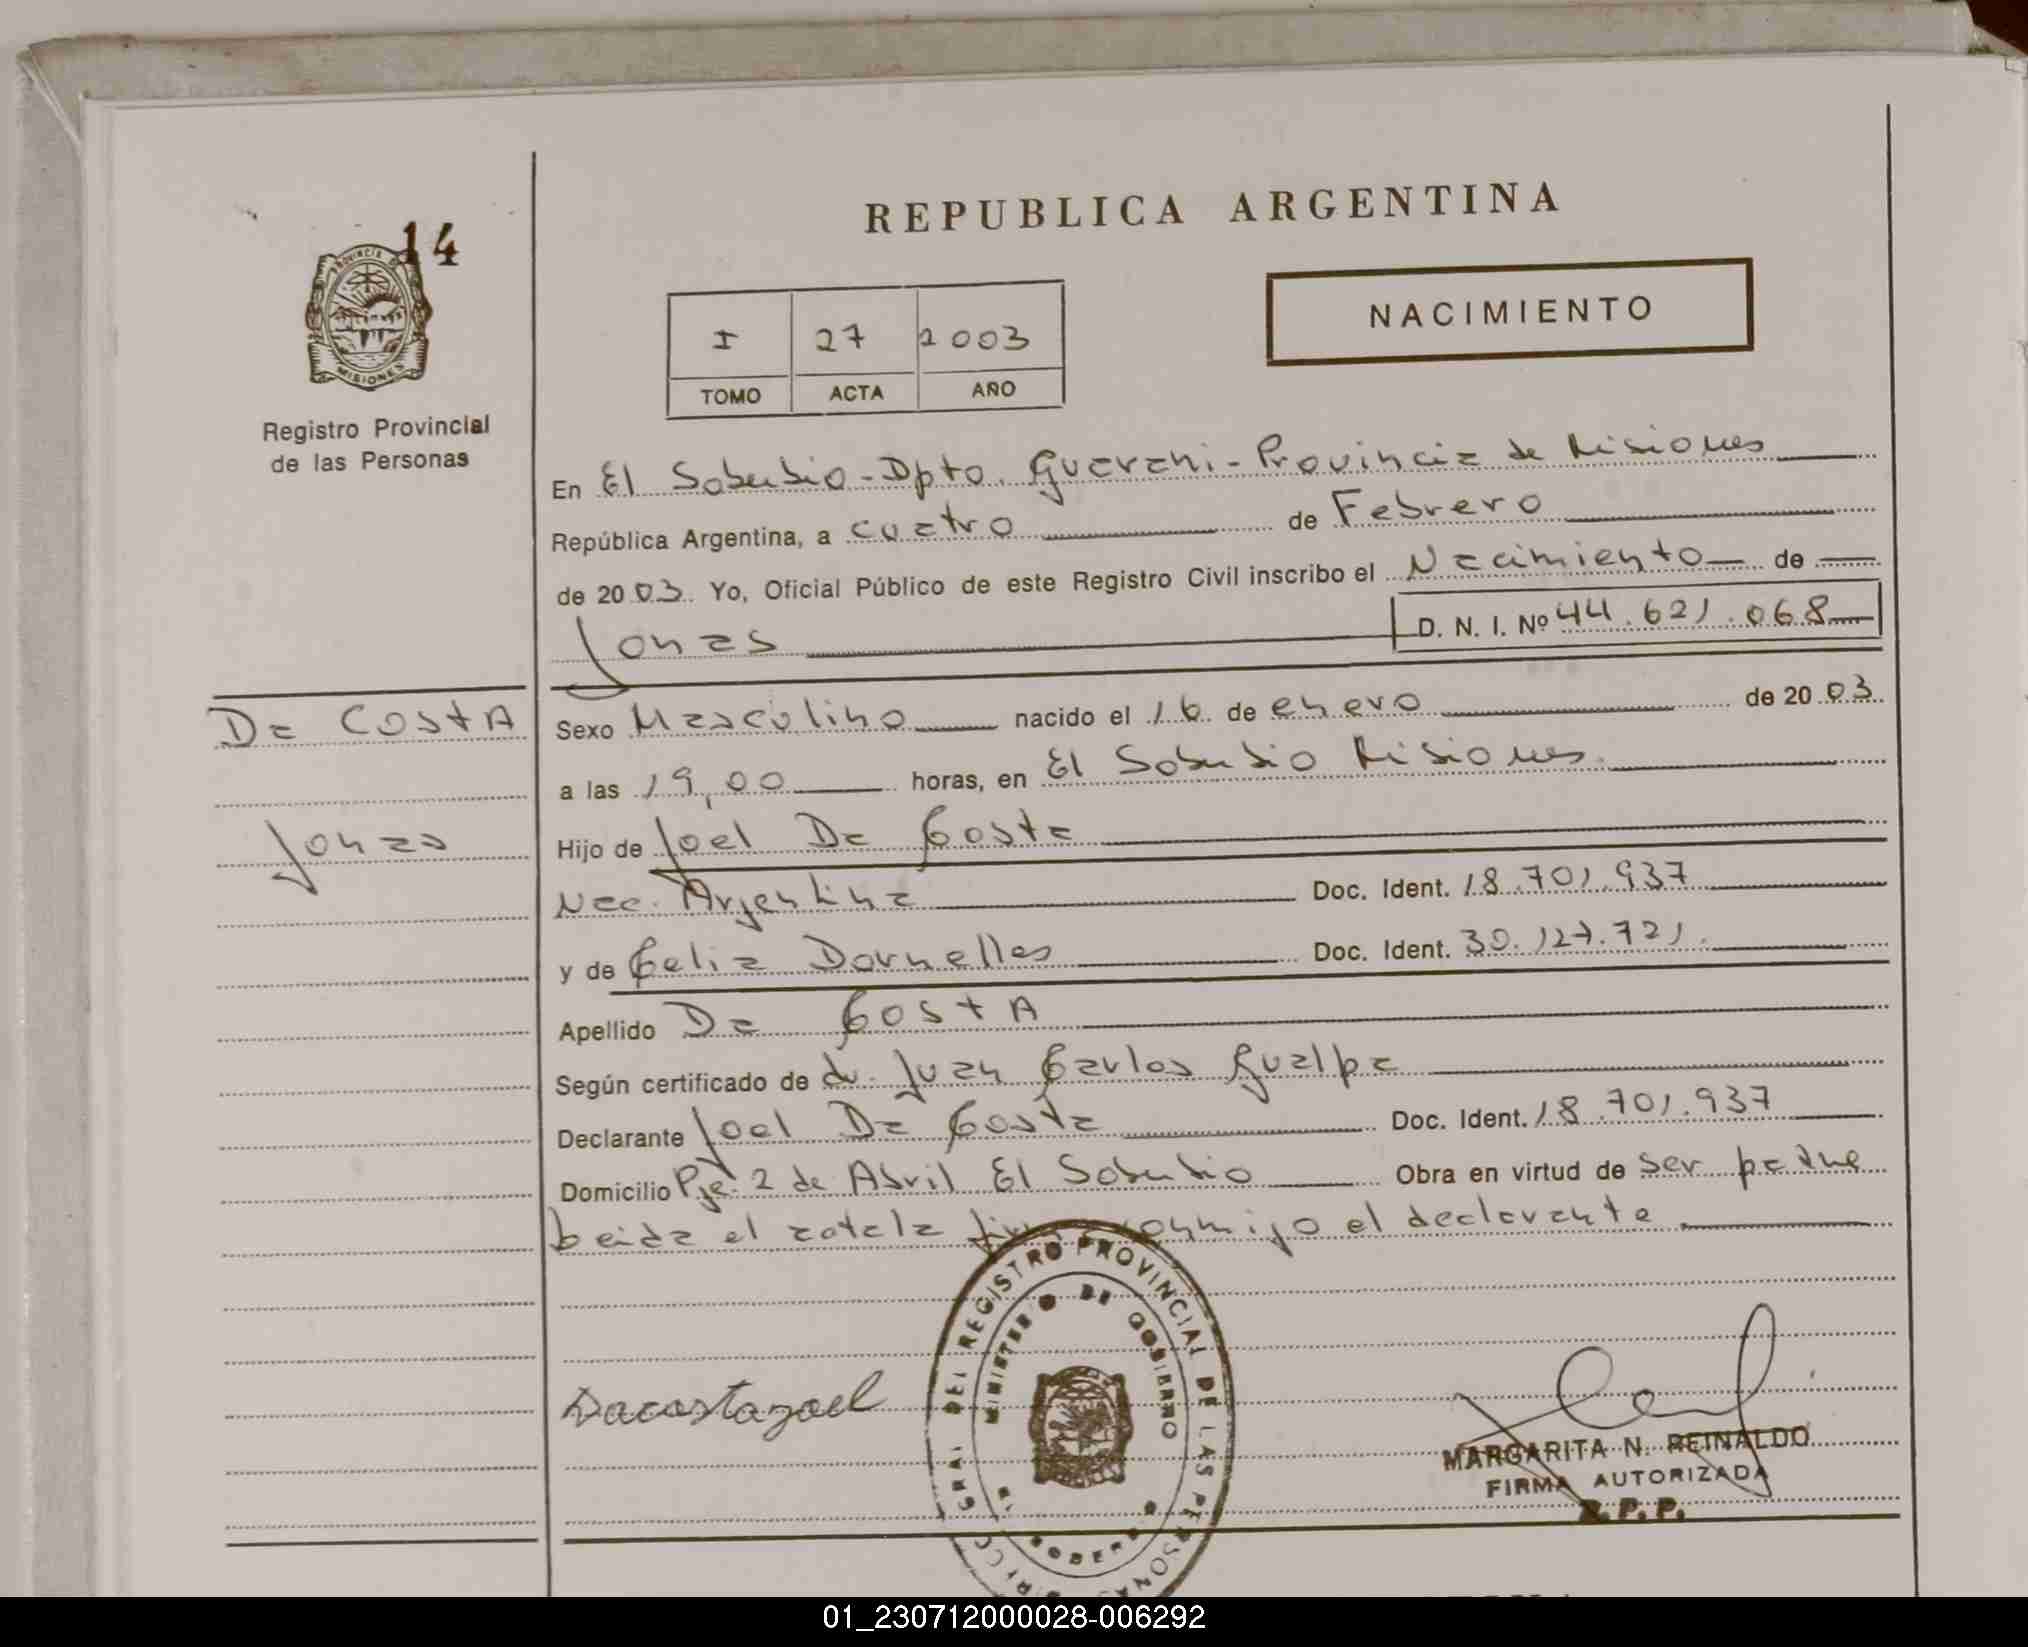 REPUBLICA ARGENTINA
14
PROVINCIA DE
MISIONES
Registro Provincial
de las Personas
NACIMIENTO
I 27 2003
TOMO ACTA AÑO
En El Soberbio - Dpto. Guarani - Provincia de Misiones
República Argentina, a cuatro de Febrero
de 2003. Yo, Oficial Público de este Registro Civil inscribo el Nacimiento de
Jonas D. N. I. Nº 44.621.068
Da CostA
Jonas
Sexo Masculino nacido el 16 de enero de 2003.
a las 19,00 horas, en El Soberbio Misiones.
Hijo de Joel Da Costa
Nac. Argentina Doc. Ident. 18.701.937
y de Celia Dornelles Doc. Ident. 30.127.721.
Apellido Da CostA
Según certificado de dr. Juan Carlos Gualpa
Declarante Joel Da Costa Doc. Ident. 18.701.937
Domicilio Pje. 2 de Abril El Soberbio Obra en virtud de ser padre
Leida el acta la conmigo el declarante
Dacostajoel
GRAL DEL REGISTRO PROVINCIAL DE LAS PERSONAS
MINISTERIO DE GOBIERNO
MARGARITA N. REINALDO
FIRMA AUTORIZADA
R.P.P.
01_230712000028-006292